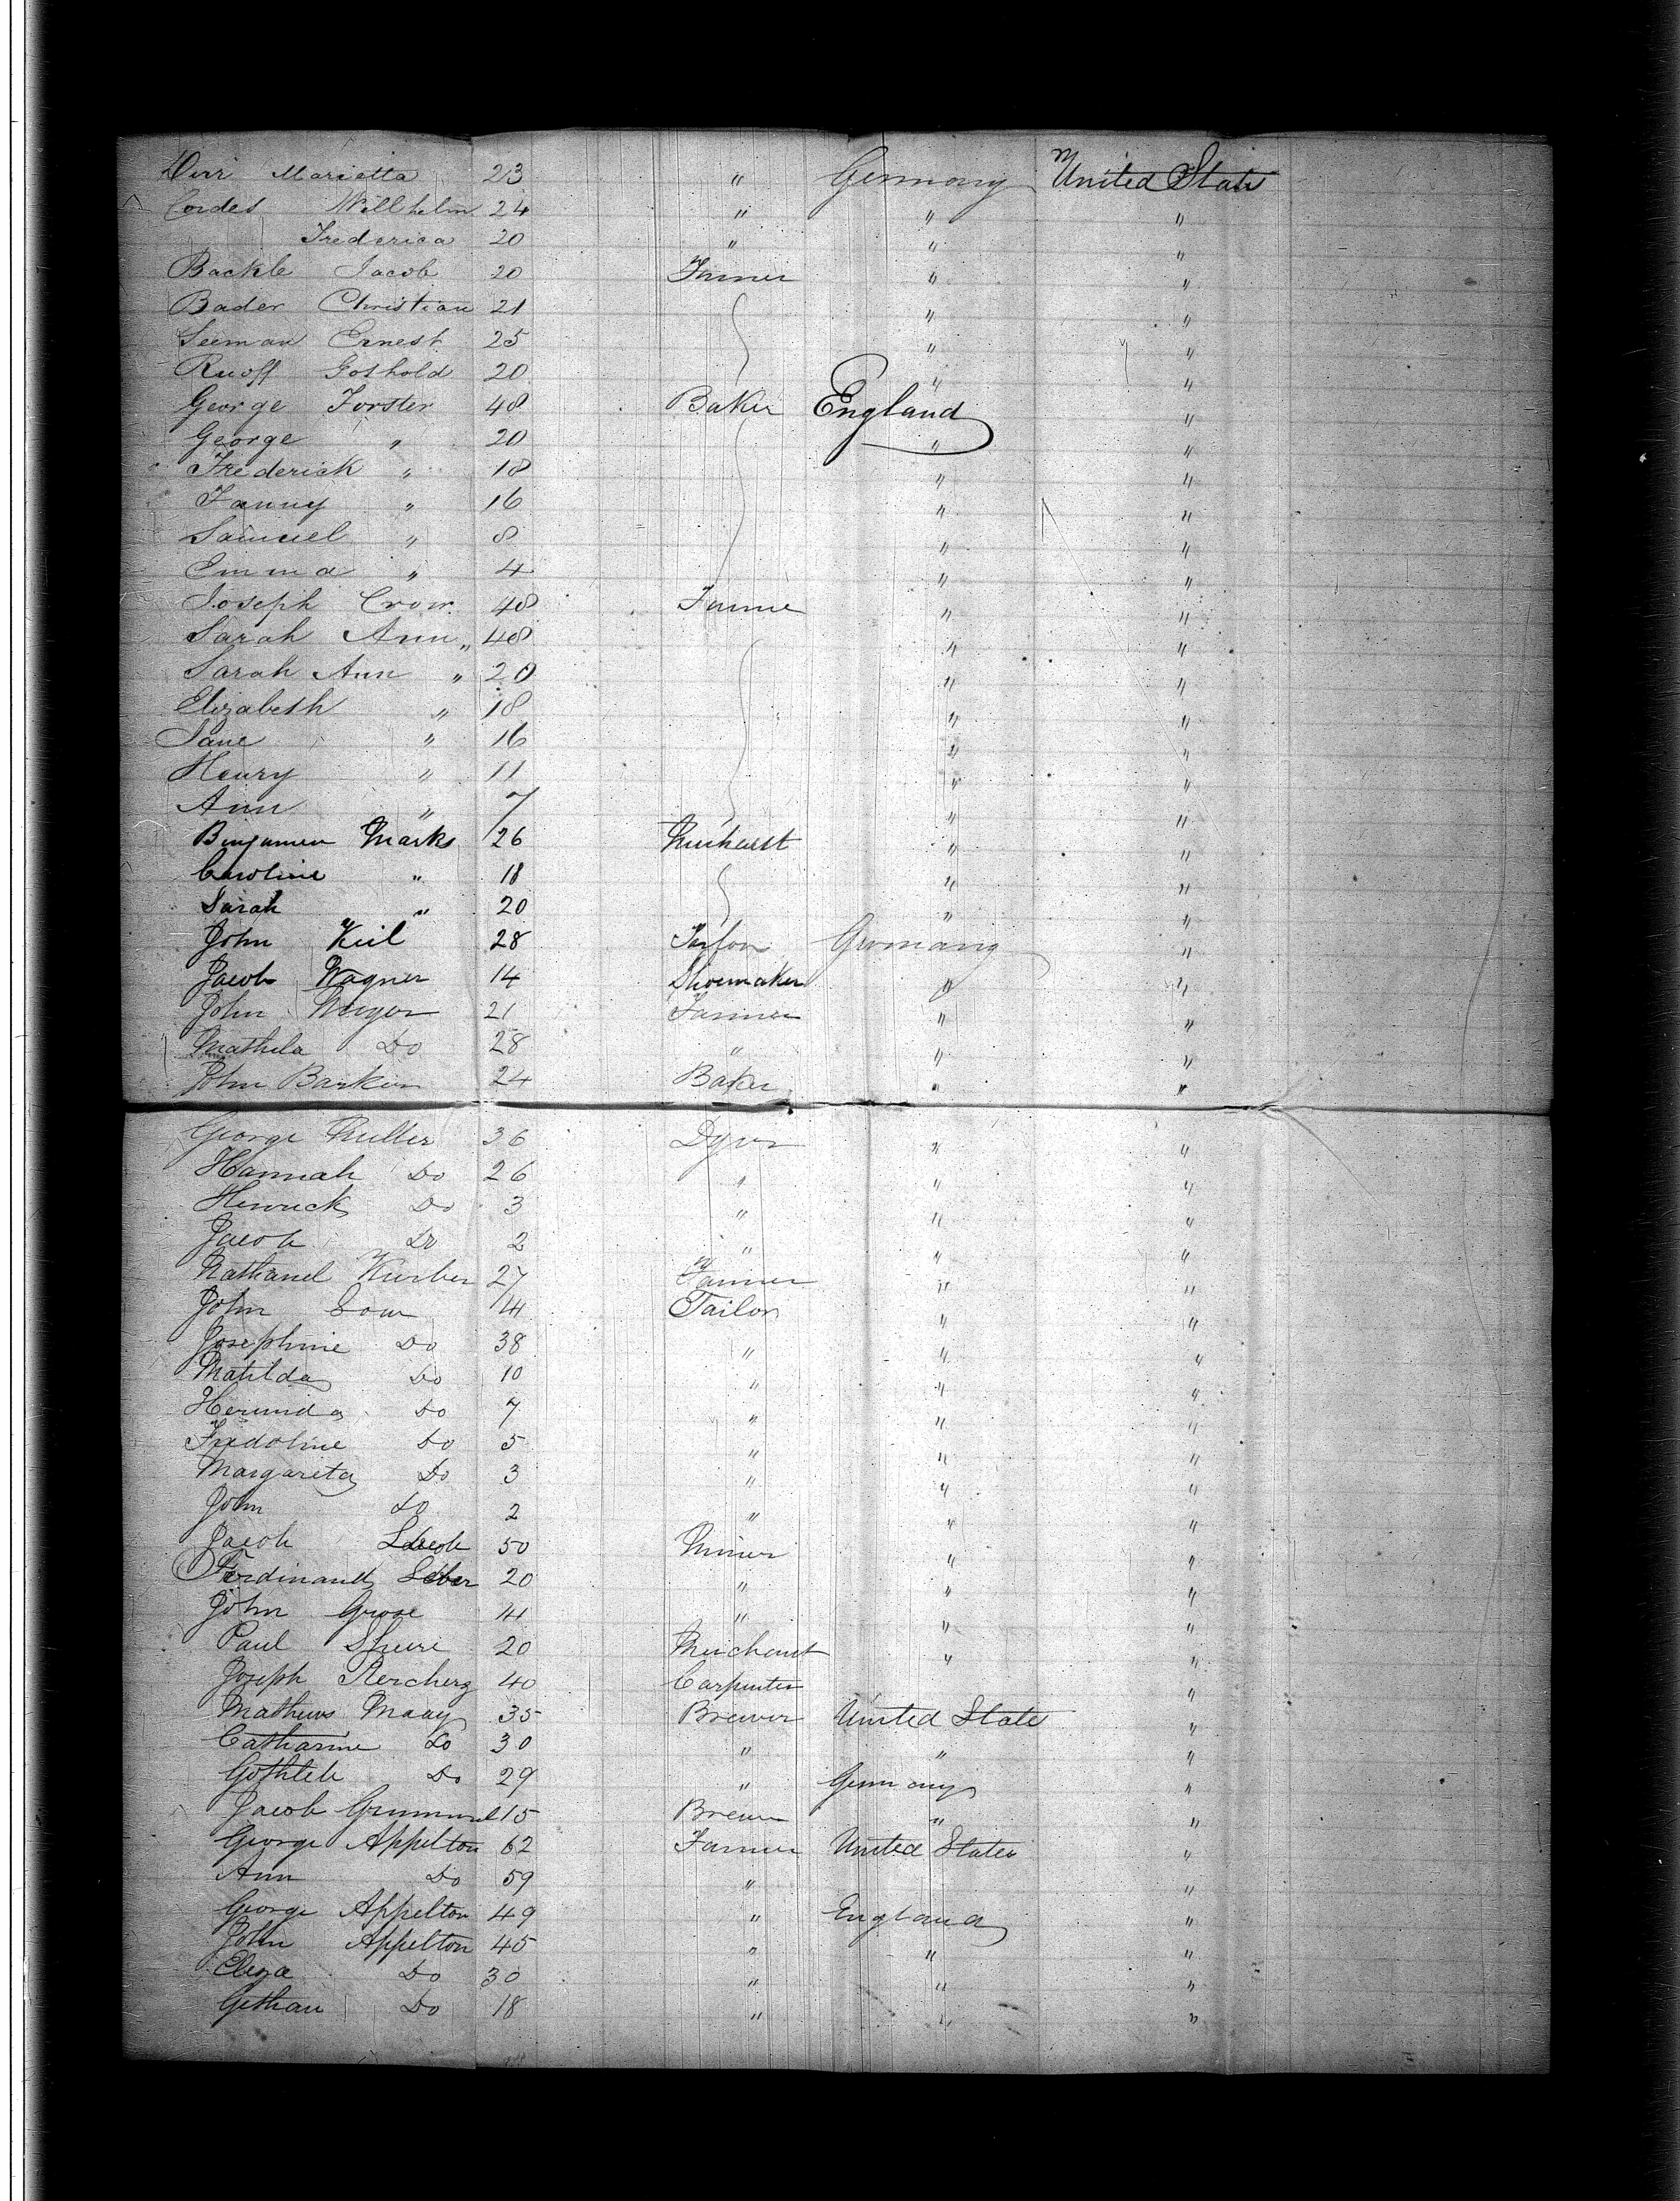 Dirr Marietta 23 " Germany United State
Cordes Willhelm 24 " " "
Frederica 20 " " "
Backle Jacob 20 Farmer " "
Bader Christian 21 " "
Seeman Ernest 25 " "
Ruoff Gothold 20 " "
George Forster 48 Baker England "
George " 20 " "
Frederick " 18 " "
Fanny " 16 " "
Samuel " 8 " "
Emma " 4 " "
Joseph Crow 48 Farme " "
Sarah Ann " 48 " "
Sarah Ann " 20 " "
Elizabeth " 18 " "
Jane " 16 " "
Henry " 11 " "
Ann " 7 " "
Benjamen Marks 26 " "
Caroline " 18 " "
Sarah " 20 " "
John Keil 28 Germany "
Jacob Wagner 14 Shoemaker " "
John 21 Farmer " "
Mathila Do 28 " " "
John Barker 24 Baker " "
George Muller 36 Dyer " "
Hannah Do 26 " " "
Henrick Do 3 " " "
Jacob Do 2 " " "
Nathanel Kurber 27 Farmer " "
John 44 Tailor " "
Josephine Do 38 " " "
Matilda Do 10 " " "
Do 7 " " "
Fredoline Do 5 " " "
Margareta Do 3 " " "
John Do 2 " " "
Jacob 50 Miner " "
Ferdinand 20 " " "
John Grose 44 " " "
Paul 20 Merchant " "
Joseph 40 Carpenter "
Mathews Maay 35 Brewer United State "
Catharine Do 30 " " "
Gothleb Do 29 " Germany "
Jacob 15 Brewer " "
George Appelton 62 Farmer United States "
Ann Do 59 " "
George Appelton 49 " England "
John Appelton 45 " " "
Eliza Do 30 " " "
Do 18 " " "